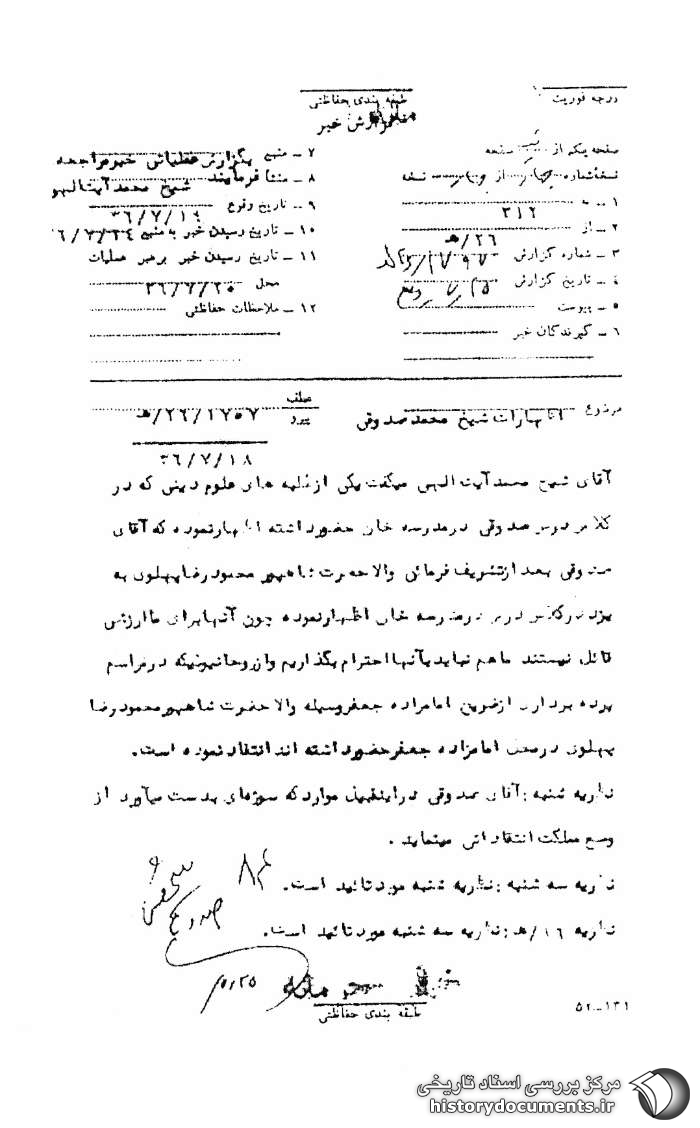 درجه فوریت
طبقه بندی حفاظتی
گزارش خبر
صفحه یکم از صفحه
نسخه شماره از نسخه
۱ ــ به ۳۱۲
۲ ــ از ۲۶/هـ
۳ ــ شماره گزارش
۴ ــ تاریخ گزارش
۵ ــ پیوست
۶ ــ گیرندگان خبر
۷ ــ منبع بگزارش خبر مراجعه
۸ ــ منشا فرمایند شیخ محمد آیت الهی
۹ ــ تاریخ وقوع ۳۶/۷/۱۹
۱۰ ــ تاریخ رسیدن خبر به منبع ۶/۷/۲۴
۱۱ ــ تاریخ رسیدن خبر برهبر عملیات
محل ۳۶/۷/۲۰
۱۲ ــ ملاحظات حفاظتی
موضوع اظهارات شیخ محمد صدوقی
عطف
پیرو ۲۶/۱۷۵۷/هـ
۳۶/۷/۱۸
آقای شیخ محمد آیت الهی میگفت یکی از طلبه های علوم دینی که در
کلاس درس صدوقی در مدرسه خان حضور داشته اظهار نموده که آقای
صدوقی بعد از تشریف فرمائی والاحضرت شاهپور محمود رضا پهلوی به
یزد در کلاس درس در مدرسه خان اظهار نموده چون آنها برای ما ارزش
قائل نیستند ما هم نباید بآنها احترام بگذاریم و از روحانیونیکه در مراسم
پرده برداری از ضریح امامزاده جعفر وسیله والاحضرت شاهپور محمود رضا
پهلوی در صحن امامزاده جعفر حضور داشته اند انتقاد نموده است.
نظریه شنبه : آقای صدوقی در اینقبیل موارد که سوژه‌ای بدست میآورد از
وضع مملکت انتقاداتی مینماید .
نظریه سه شنبه : نظریه شنبه مورد تائید است.
نظریه ۱۶/هـ : نظریه سه شنبه مورد تائید است.
طبقه بندی حفاظتی
۵۲ــ۱۳۱
مرکز بررسی اسناد تاریخی
historydocuments.ir